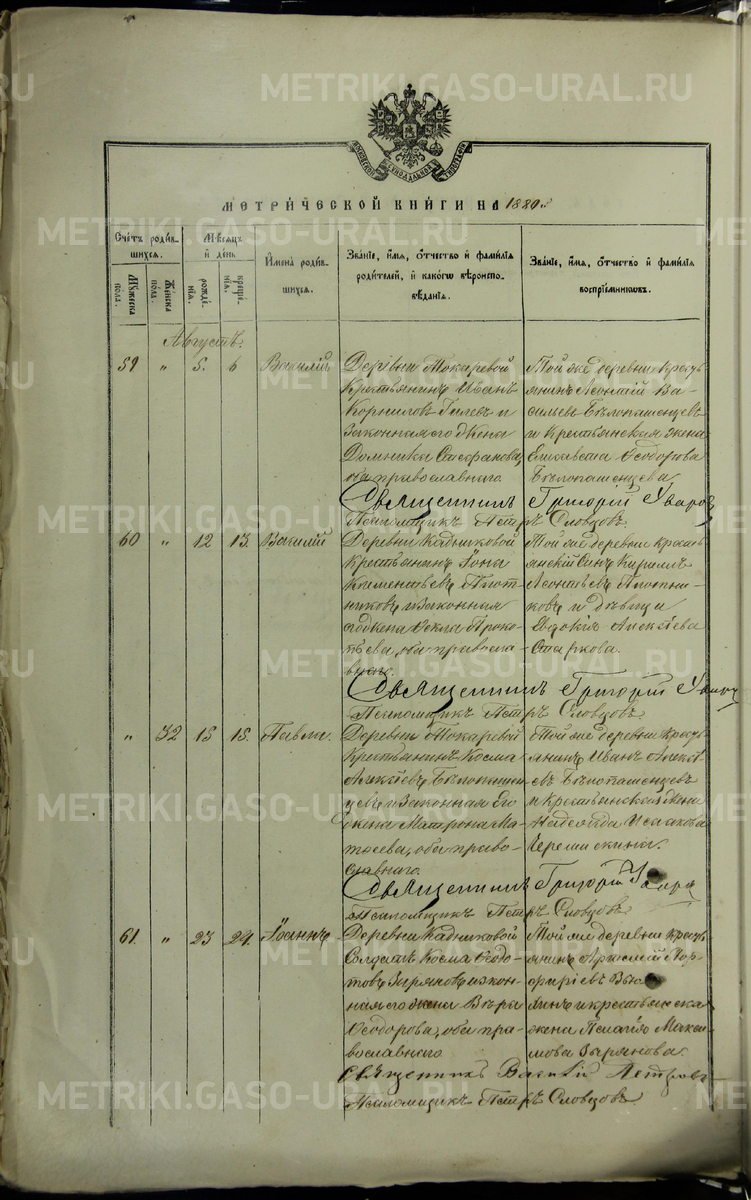 METRIKI.GASO-URAL.RU
МОСКОВСКОЙ СѴНОДАЛЬНОЙ ТИПОГРАФІИ
МЕТРИ́ЧЕСКОЙ КНИ́ГИ НА 1880 г.
Сче́тъ роди́в-
шихся.
Му́жеска по́ла.
Же́нска по́ла.
Мѣ́сяцъ
и҆ де́нь
рожде́нїѧ.
креще́нїѧ.
И҆мена̀ роди́в-
шихся.
Зва́нїе, и҆́мѧ, ѻ҆́тчество и҆ фами́лїѧ
роди́телей, и҆ како́гѡ вѣроиспо-
вѣ́данїѧ.
Зва́нїе, и҆́мѧ, ѻ҆́тчество и҆ фами́лїѧ
воспрїе́мникѡвъ.
Августъ.
59 " 5. 6 Василій
Деревни Токаревой
Крестьянинъ Иванъ
Корниловъ Гилевъ и
Законная его жена
Домника Стефанова,
оба православнаго
Той же деревни кресть
янинъ Леонтій Ва-
сильевъ Бѣлопашенцевъ
и крестьянская жена
Елисавета Ѳеодорова
Бѣлопашенцева
Священникъ Григорій Уваровъ
Псаломщикъ Петръ Словцовъ.
60 " 12 13. Василій
Деревни Кадниковой
Крестьянинъ Іона
Климентьевъ Плот-
никовъ и Законная
его жена Ѳекла Проко-
пьева, оба правосла-
внаго.
Той же деревни кресть
янскій Сынъ Кириллъ
Леонтьевъ Плотни-
ковъ и дѣвица
Евдокія Алексіева
Старкова.
Священникъ Григорій Уваровъ
Псаломщикъ Петръ Словцовъ.
" 32 15 15. Павла.
Деревни Токаревой
Крестьянинъ Косма
Алексіевъ Бѣлопашен-
цевъ и Законная его
жена Матрона Ма-
тѳеева, оба право-
славнаго.
Той же деревни кресть
янинъ Иванъ Алексі-
евъ Бѣлопашенцевъ
и крестьянская жена
Надежда Исаакова
Черемискина.
Священникъ Григорій Уваровъ
Псаломщикъ Петръ Словцовъ
61. " 23 24. Іоаннъ
Деревни Кадниковой
Солдатъ Косма Ѳедо-
товъ Зыряновъ и закон-
ная его жена Вѣра
Ѳеодорова, оба пра-
вославнаго
Той же деревни кресть
янинъ Пор-
фиріевъ
и крестьянска
жена Пелагія Макси-
мова Зырянова.
Священникъ Василій Петровъ
Псаломщикъ Петръ Словцовъ